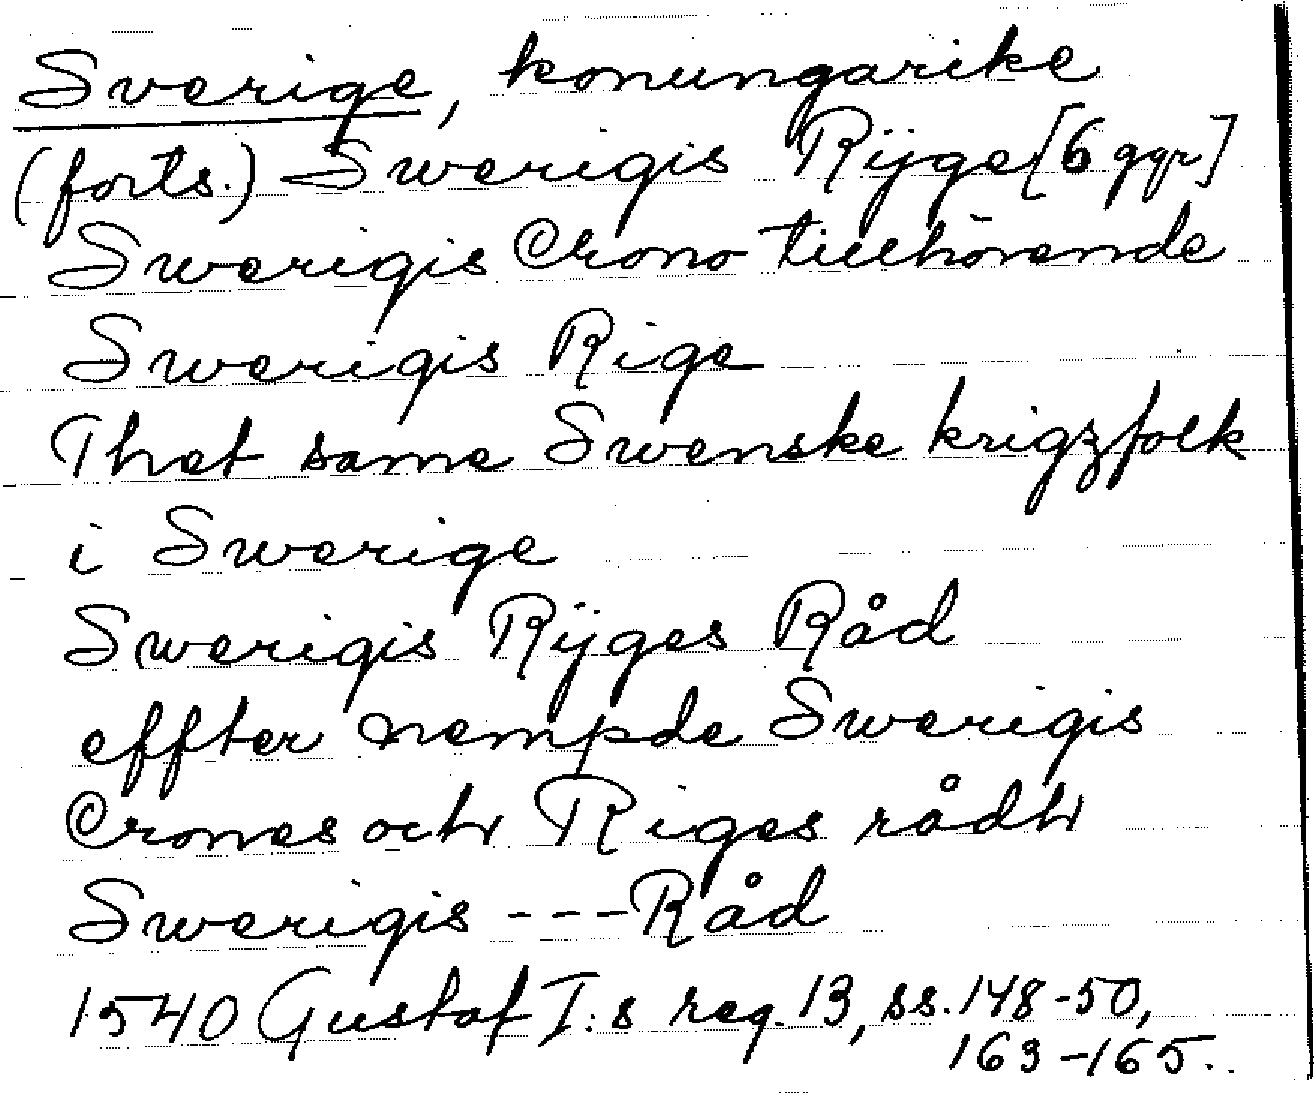 Sverige, konungarike
(forts.) Swerigis Rÿge [6 ggr]
Swerigis Crono tillhörende
Swerigis Rige
Thet same Swenske krigzfolk
i Swerige
Swerigis Rÿges Råd
effter nempde Swerigis
Crones och Riges rådh
Swerigis --- Råd
1540 Gustaf I:s reg. 13, ss. 148-50,
163-165.